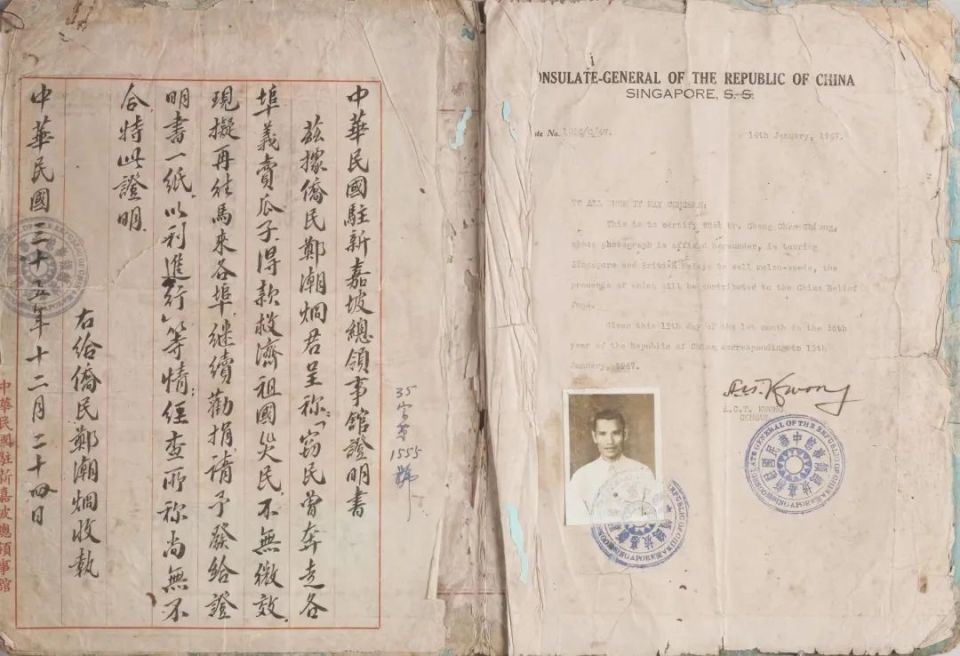 中華民國駐新嘉坡總領事館證明書
茲據僑民鄭潮烱君呈称:「窃民曾奔走各
埠義賣瓜子,得款救濟祖國災民,不無微效.
現擬再往馬來各埠,継續勸捐請予發給證
明書一紙,以利進行」等情;經查所称尚無不
合特此證明.
右給僑民鄭潮烱收執
中華民國三十五年十二月二十四日
中華民國駐新嘉坡總領事館
35字第1555號
ONSULATE-GENERAL OF THE REPUBLIC OF CHINA
SINGAPORE, S. S.
No.
January, 1947.
TO ALL WHOM IT MAY CONCERN:
This is to certify that Mr. Cheng
whose photograph is affixed hereunder, is touring
Singapore and British Malaya to sell melon-seeds, the
proceeds of which will be contributed to the China Relief
Fund.
Given this day of the 1st month in the 36th
year of the Republic of China corresponding to 15th
January, 1947.
Kwong
KWONG
CONSULATE-GENERAL OF THE REPUBLIC OF CHINA SINGAPORE